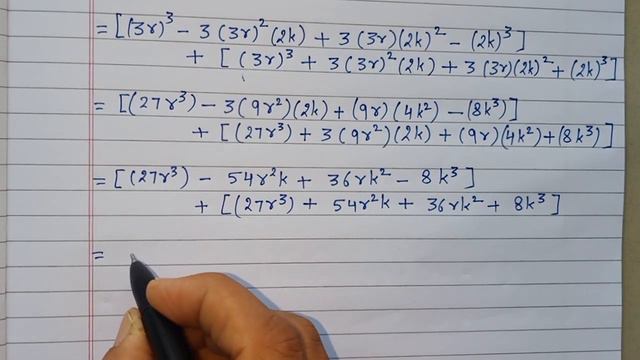 = [(3r)³ - 3(3r)²(2k) + 3(3r)(2k)² - (2k)³]
+ [(3r)³ + 3(3r)²(2k) + 3(3r)(2k)² + (2k)³]
= [(27r³) - 3(9r²)(2k) + (9r)(4k²) - (8k³)]
+ [(27r³) + 3(9r²)(2k) + (9r)(4k²) + (8k³)]
= [(27r³) - 54r²k + 36rk² - 8k³]
+ [(27r³) + 54r²k + 36rk² + 8k³]
=